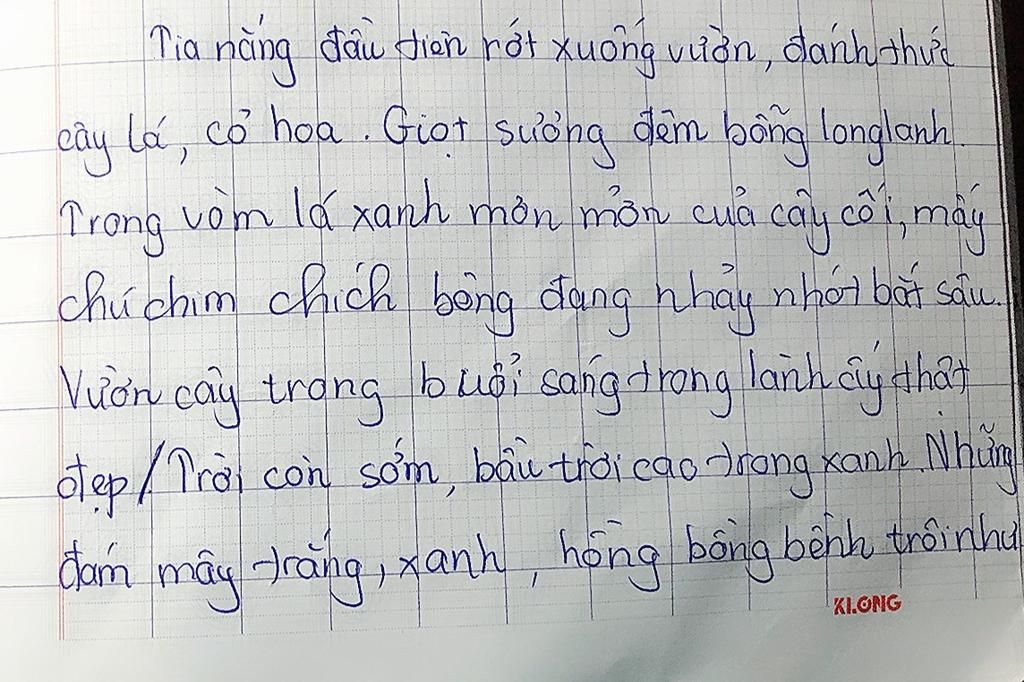 Tia nắng đầu tiên rớt xuống vườn, đánh thức
cây lá, cỏ hoa. Giọt sương đêm bỗng long lanh.
Trong vòm lá xanh mơn mởn của cây cối, mấy
chú chim chích bông đang nhảy nhót bắt sâu.
Vườn cây trong buổi sáng trong lành ấy thật
đẹp/Trời còn sớm, bầu trời cao trong xanh. Những
đám mây trắng, xanh, hồng bồng bềnh trôi như
KLONG